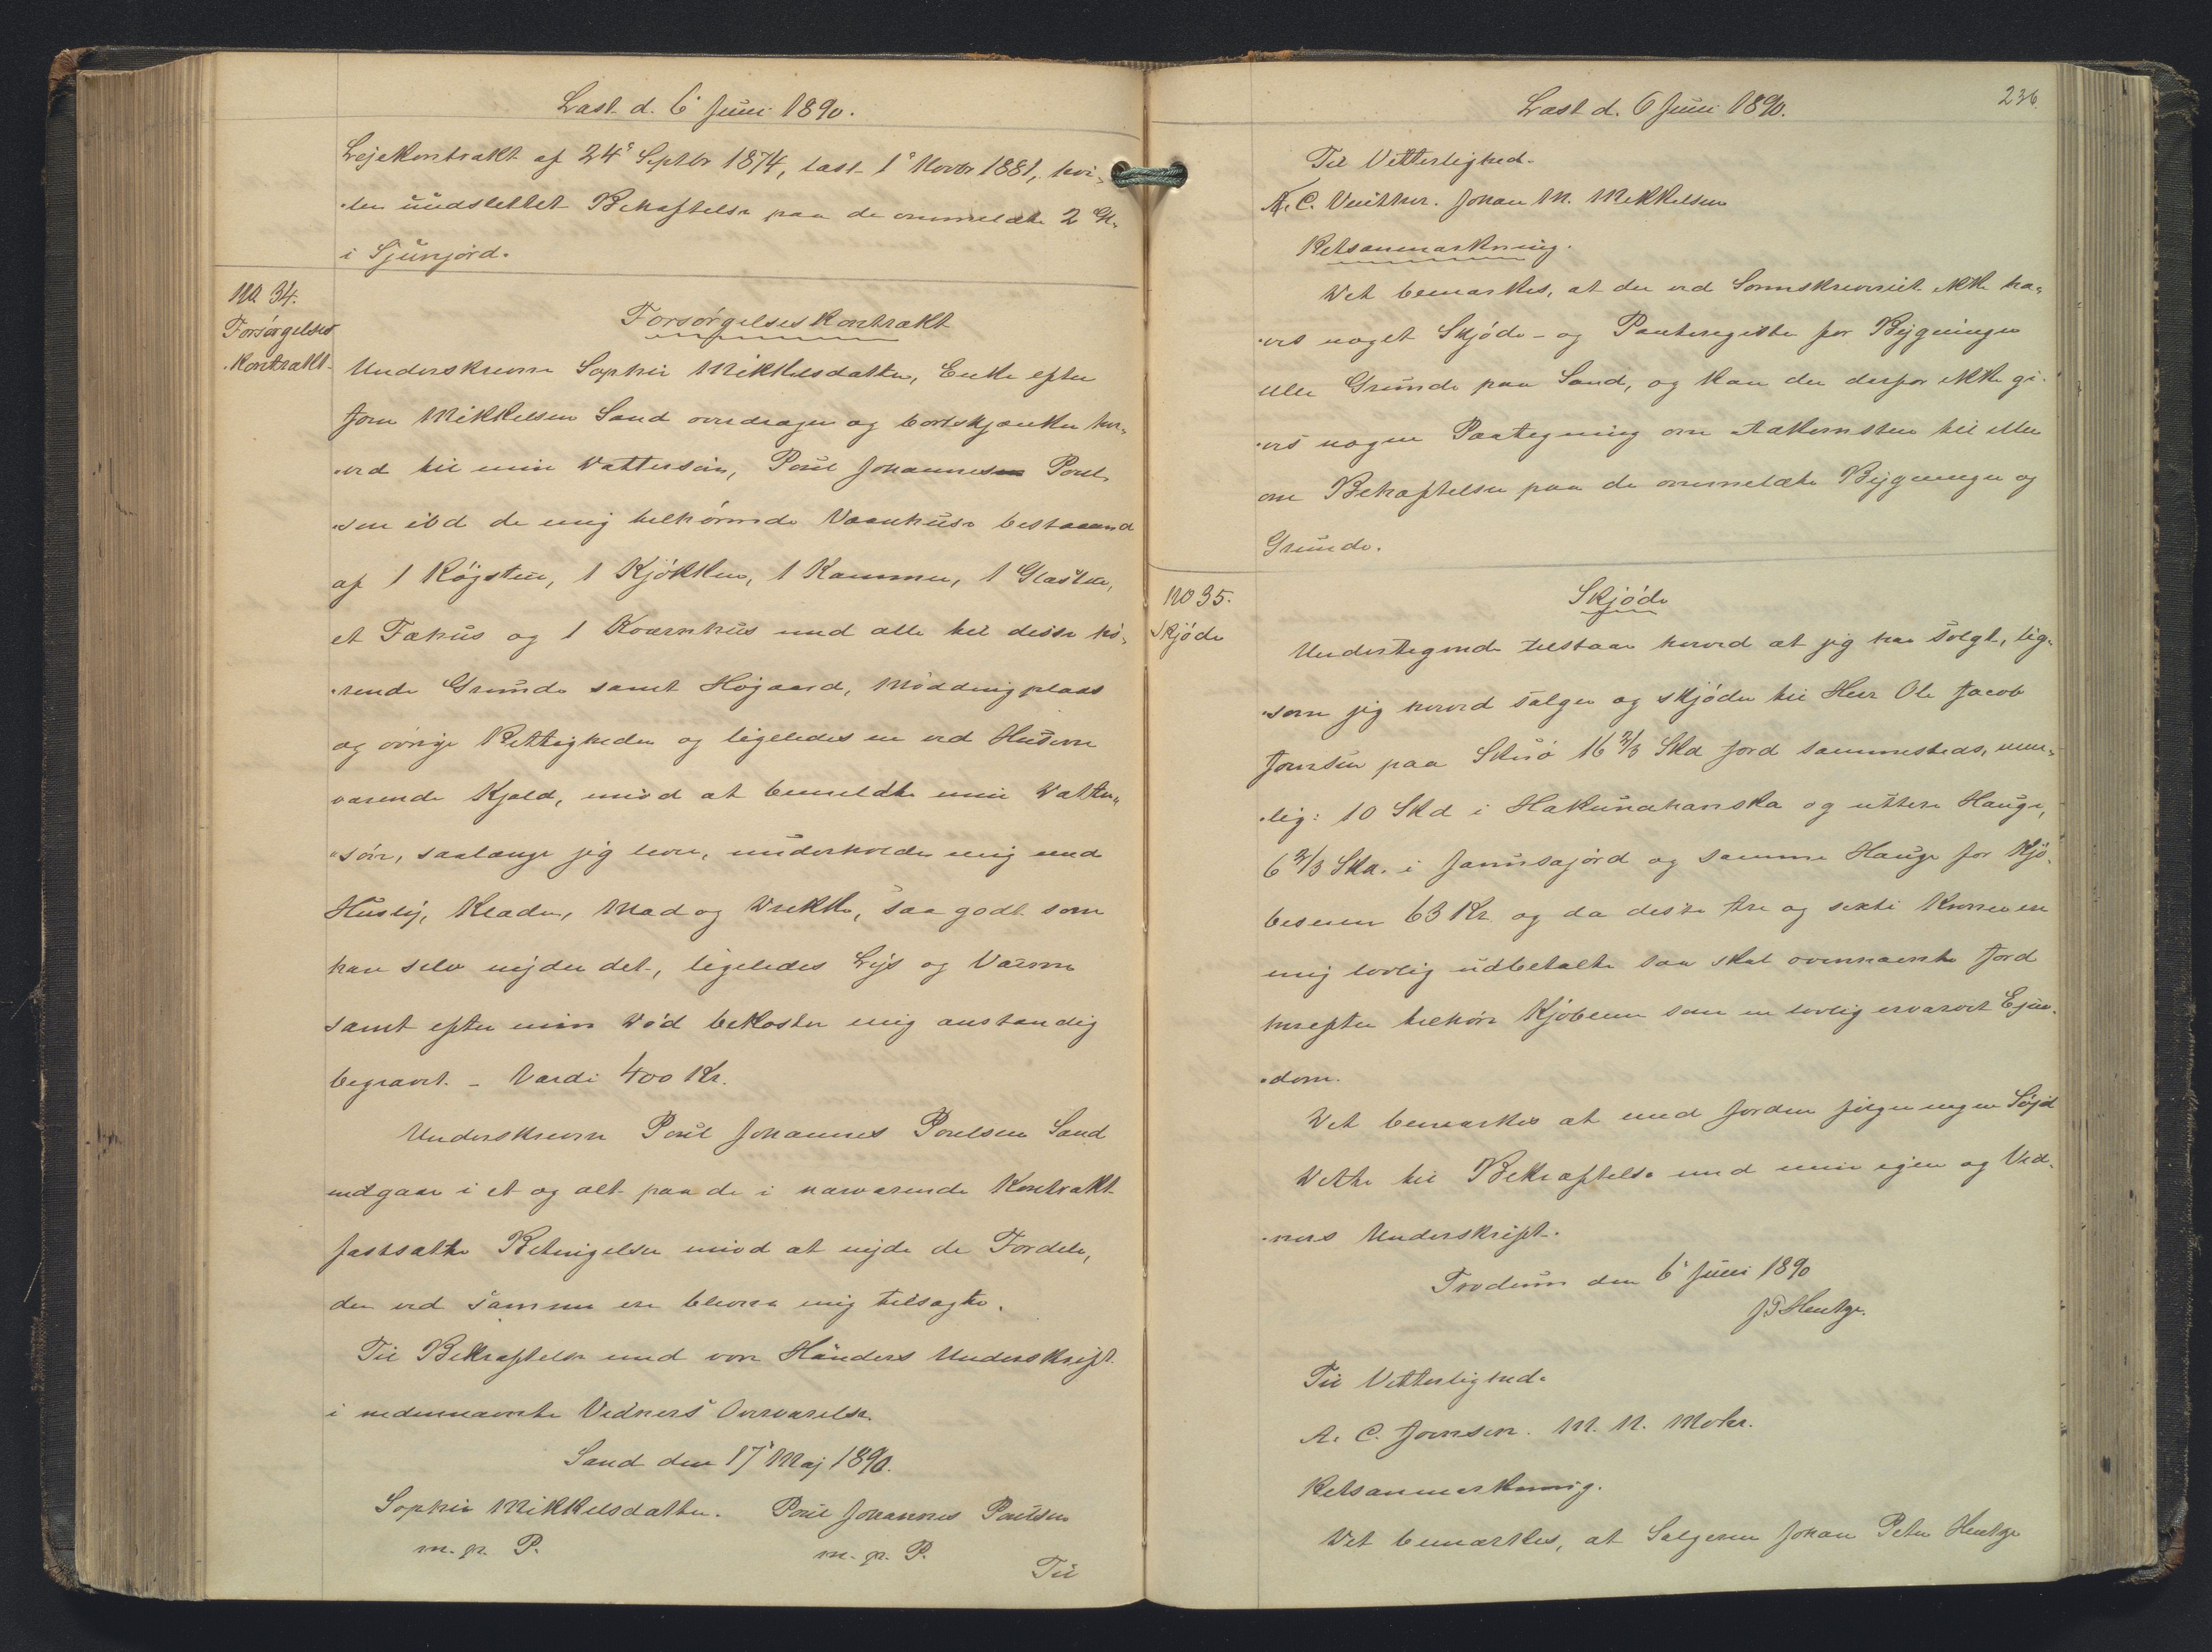 Læst d. 6' Juni 1890.
Lejekontrakt af 24' Septbr 1874, læst 1' Novbr 1881, hvi-
-ler uudslettet Behæftelse paa de ommeldte 2 Gl.
i Sjúnjørd.
No 34.
Forsørgelses
-kontrakt.
Forsørgelseskontrakt
Underskrevne Sophie Mikkelsdatter, Enke efter
Joen Mikkelsen Sand overdrager og bortskjænker her-
-ved til min Dattersøn, Poul Johannes Poul-
-sen ibd de mig tilhørende Vaanhuse bestaaend
af 1 Røgstue, 1 Kjøkken, 1 Kammer, 1 Glastue,
et Fæhus og 1 Kværnhus med alle til disse hø-
-rende Grunde samt Høgaard, Møddingplads
og øvrige Rettigheder og ligeledes en ved Husene
værende Kjald, imod at bemeldte min Datter-
-søn, saalænge jeg lever, underholder mig med
Husly, Klæder, Mad og Drikke, saa godt som
han selv nyder det, ligeledes Lys og Varme
samt efter min Død bekoster mig anstændig
begravet. - Værdi 400 Kr.
Underskrevne Poul Johannes Poulsen Sand
indgaar i et og alt paa de i nærværende Kontrakt
fastsatte Betingelser imod at nyde de Fordele,
der ved samme ere blevne mig tilsagte.
Til Bekræftelse med vore Hænders Underskrift
i nedennævnte Vidners Overværelse.
Sand den 17' Maj 1890.
Sophie Mikkelsdatter. Poul Johannes Poulsen
m. p. P. m. p. P.
Til
Læst d. 6 Juni 1890.
236.
Til Vitterlighed.
A. C. Winther. Johan M. Mikkelsen
Retsanmærkning.
Det bemærkes, at der ved Sorenskriveriet ikke ha-
-ves noget Skjøde- og Panteregister for Bygninger
eller Grunde paa Sand, og kan der derfor ikke gi-
-ves nogen Paategning om Adkomsten til eller
om Behæftelser paa de ommeldte Bygninger og
Grunde.
No 35.
Skjøde
Skjøde
Undertegnede tilstaar herved at jeg har solgt, lig-
-som jeg herved sælger og skjøder til Herr Ole Jacob
Joensen paa Skuø 16 2/3 Skd Jord sammesteds, nem-
-lig: 10 Skd i Hakunahanska og uttere Hauge,
6 2/3 Skd. i Janusajørd og samme Hauge for Kjø-
besum 63 Kr og da disse tre og sexti Kroner er
mig lovlig udbetalte saa skal ovennævnte Jord
herefter tilhøre Kjøberen som en lovlig erværvet Ejen-
-dom.
Det bemærkes at med Jorden følger ingen Søjd
Dette til Bekræftelse med min egen og Vid-
-ners Underskrift.
Trodum den 6' Juni 1890
J P Hentze.
Til Vitterlighed.
A. C. Joensen. M. N. Mohr.
Retsanmærkning.
Det bemærkes, at Sælgeren Johan Peter Hentze